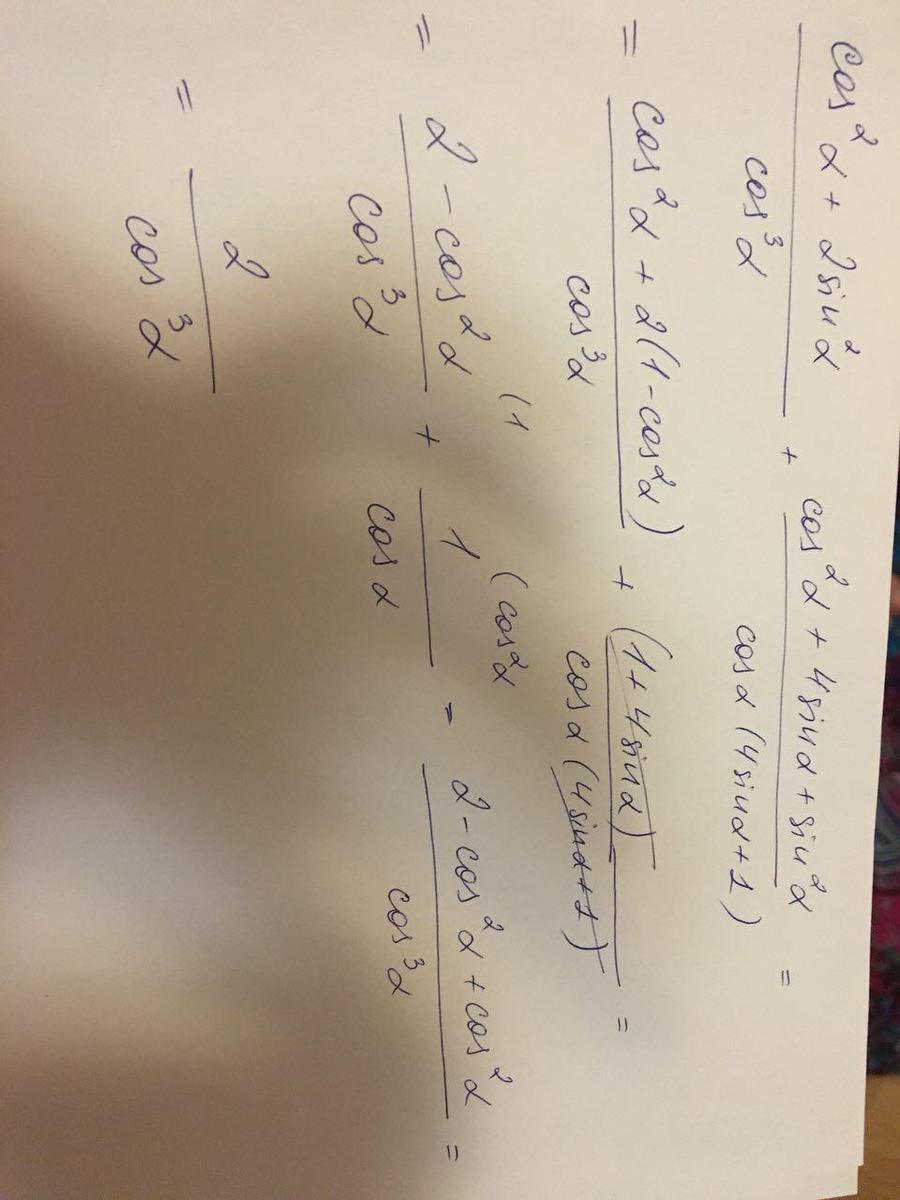 (cos²α + 2sin²α)/(cos³α) + (cos²α + 4sinα + sin²α)/(cosα(4sinα+1)) =
= (cos²α + 2(1-cos²α))/(cos³α) + (1+4sinα)/(cosα(4sinα+1)) =
= (2-cos²α)/(cos³α) (1 + 1/(cosα) (cos²α = (2-cos²α+cos²α)/(cos³α) =
= 2/(cos³α)